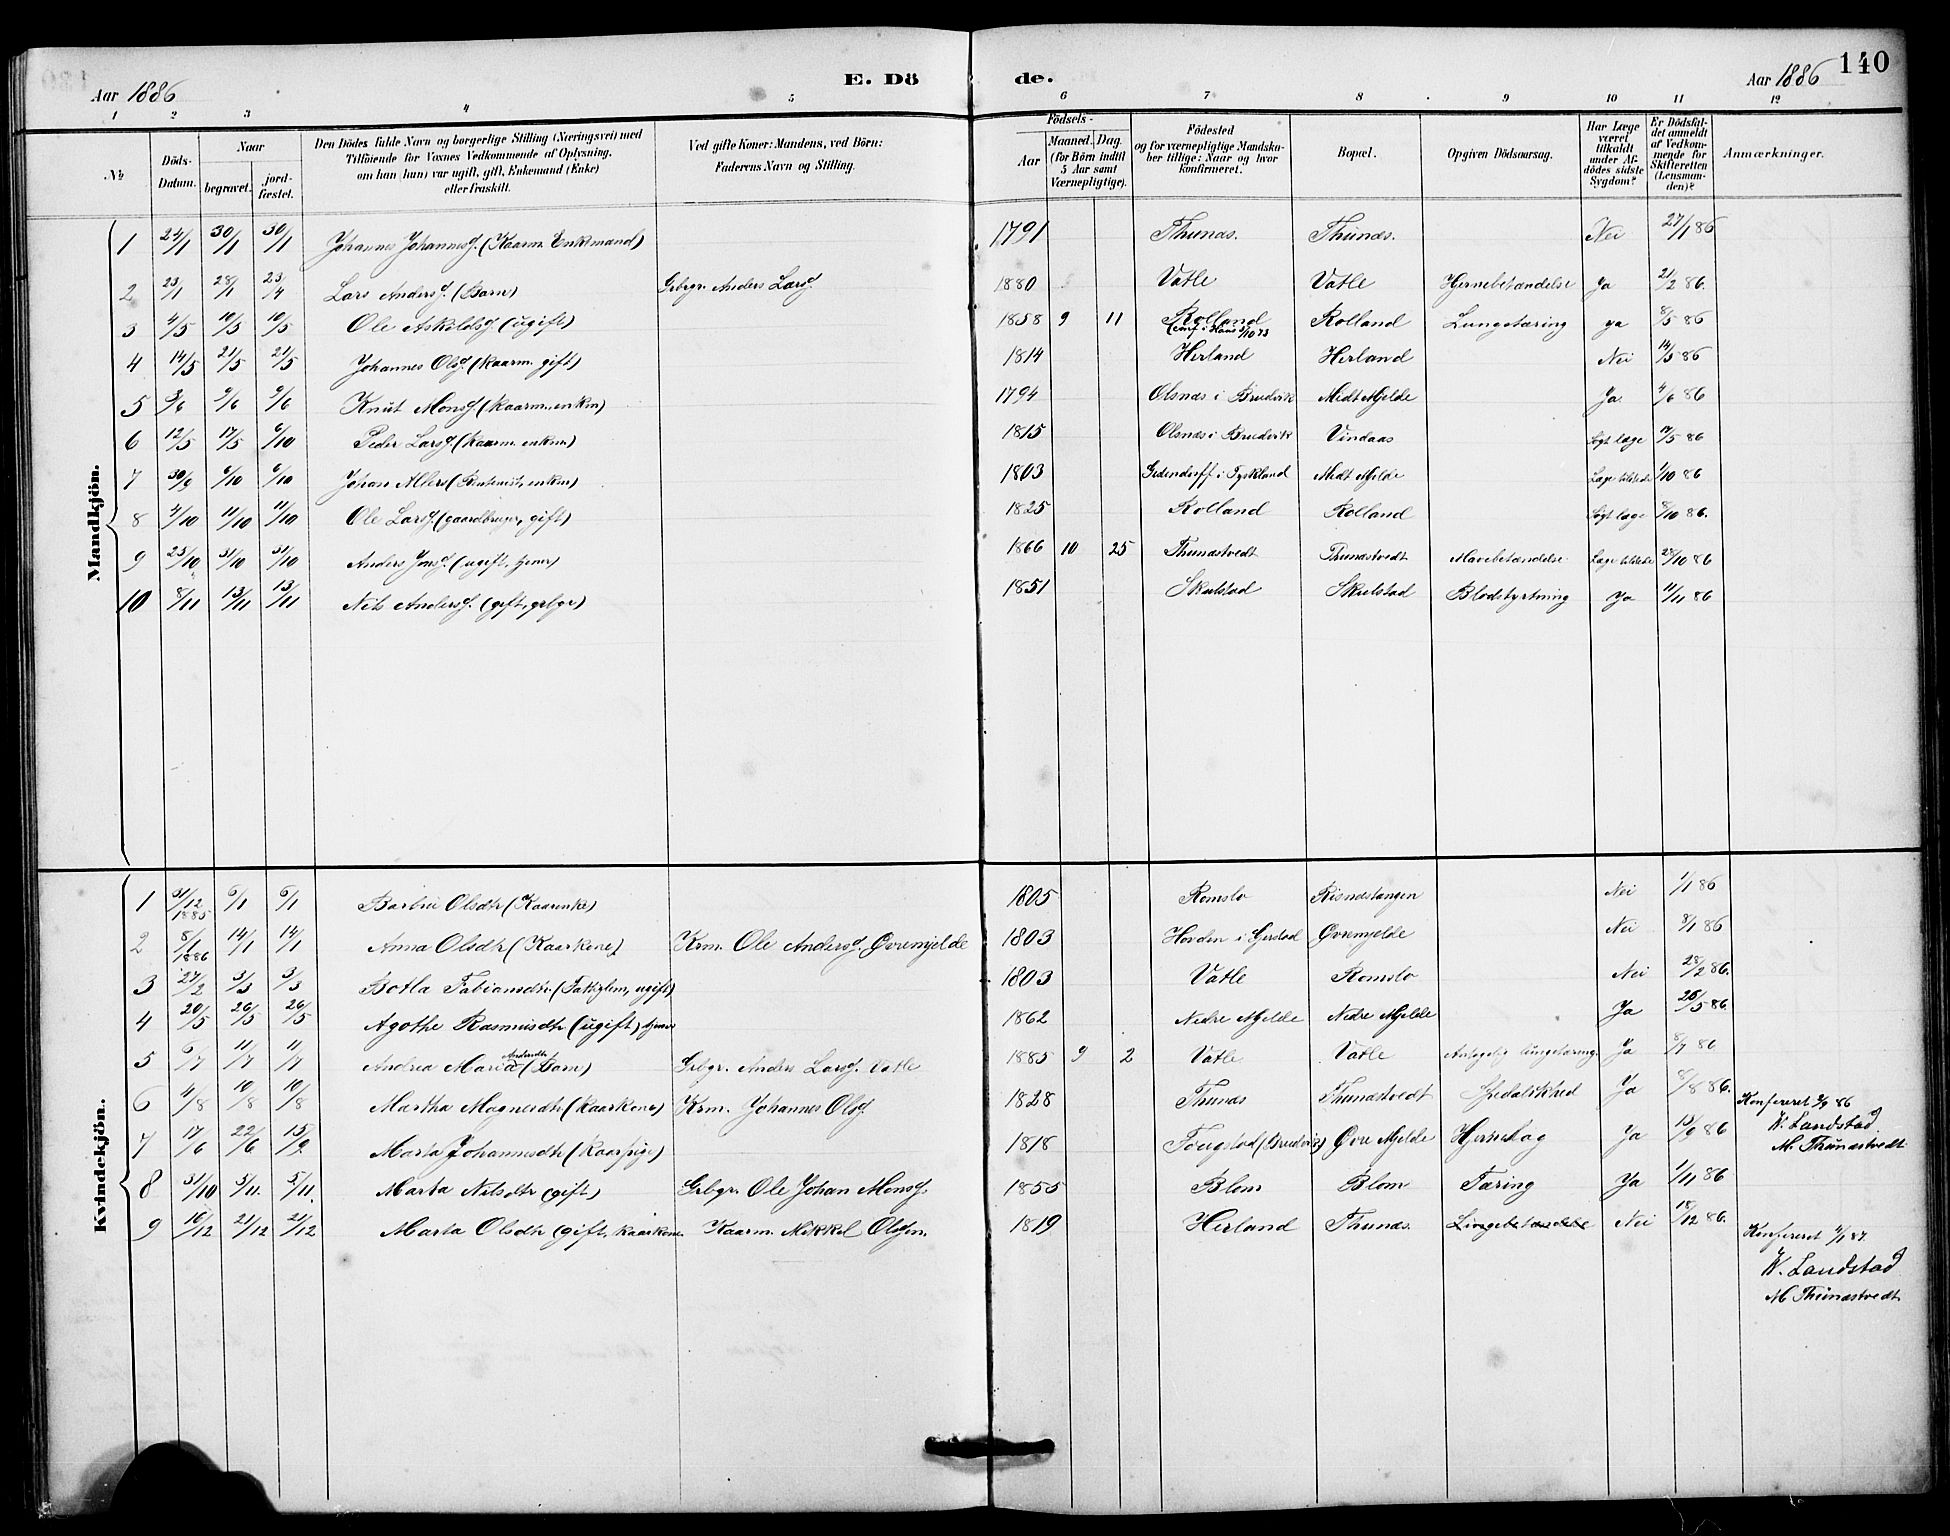 140
Aar 1886 E. Dö de. Aar 1886
1 2 3 4 5 6 7 8 9 10 11 12
№ Döds-Datum. Naar begravet. jord-fæstet. Den Dödes fulde Navn og borgerlige Stilling (Næringsvei) med Tilföiende for Voxnes Vedkommende af Oplysning, om han (hun) var ugift, gift, Enkemand (Enke) eller fraskilt. Ved gifte Koner: Mandens, ved Börn: Faderens Navn og Stilling. Födsels- Aar Maaned. Dag. (for Börn indtil 5 Aar samt Værnepligtige). Födested og for værnepligtige Mandskaber tillige: Naar og hvor konfirmeret. Bopæl. Opgiven Dödsaarsag. Har Læge været tilkaldt under Afdödes sidste Sygdom? Er Dödsfaldet anmeldt af Vedkommende for Skifteretten (Lensmanden)? Anmærkninger.
Mandkjön.
1 24/1 30/1 30/1 Johannes Johannesd. (Kaarm. Enkemand) 1791 Thunæs. Thunæs. Nei 27/1 86
2 23/1 28/1 23/4 Lars Andersd. (Barn) Grbgr. Anders Larsd. 1880 Vatle Vatle Hernebetændelse Ja 21/2 86.
3 4/5 10/5 10/5 Ole Askildsd (ugift) 1858 9 11 Rolland Rolland Lungetæring ya 8/5 86
4 14/5 21/5 21/5 Johannes Olsd. (Kaarm. gift) 1814 Herland Herland Nei 14/5 86
5 3/6 9/6 9/6 Knut Monsd. (Kaarm. enkm) 1794 Olsnæs i Brudvik Midt Mjelde Ja. 4/6 86
6 12/5 17/5 6/10 Peder Larsd. (Kaarm. enkm) 1815 Olsnæs i Brudvik Vindaas Søgt læge 17/5 86
7 30/9 6/10 6/10 Johan Albers (Rentenist, enkm) 1803 i Tyskland Midt Mjelde Læge tilstede 1/10 86
8 4/10 11/10 11/10 Ole Larsd. (gaardbruger, gift) 1825 Rolland Rolland Søgt læge 8/10 86.
9 23/10 31/10 31/10 Anders Jonsd. (ugift, tjener) 1866 10 25 Thunæstvedt Thunæstvedt Mavebetændelse Læge tilstede 28/10 86
10 8/11 13/11 13/11 Nils Andersd. (gift, grbgr) 1851 Skulstad Skulstad Blodstyrtning Ja 11/11 86
Kvindekjön.
1 31/12 1885 6/1 6/1 Barbru Olsdtr (Kaarenke) 1805 Romslo Risnæstangen Nei 1/1 86
2 8/1 1886 14/1 14/1 Anna Olsdtr (Kaarkone) Krm. Ole Andersd. Øvremjelde 1803 Hovden i Gjerstad Øvremjelde Nei 8/1 86
3 27/2 3/3 3/3 Botla Fabiansdtr (Fattiglem, ugift) 1803 Vatle Romslo Nei 28/2 86.
4 20/5 26/5 26/5 Agothe Rasmusdtr (ugift) tjener 1862 Nedre Mjelde Nedre Mjelde Ja 26/5 86.
5 6/7 11/7 11/7 Andrea Maria Andersdtr (Barn) Grbgr. Anders Larsd. Vatle 1885 9 2 Vatle Vatle Antagelig lungetæring. Ja 8/7 86
6 4/8 10/8 10/8 Martha Magnesdtr (Kaarkone) Krm. Johannes Olsd 1828 Thunæs Thunæstvedt Spedalskhed Ja 8/8 86.
Konfereret 9/9 86
W. Landstad.
M. Thunæstvedt
7 17/6 22/6 15/9 Marta Johannesdtr (Kaarpige) 1818 Fougstad (Bruvik) Øvre Mjelde Hjerteslag Ja 15/9 86
8 31/10 5/11. 5/11. Marta Nilsdtr (gift) Grbgr. Ole Johan Monsd. 1855 Blom Blom Tæring Ja 1/11 86
9 16/12 21/12 21/12 Marta Olsdtr (gift, kaarkone Kaarm. Mikkel Olsen. 1819 Herland Thunæs. Lungebetændelse Nei 18/12 86.
Konfereret 4/1 87.
W. Landstad
M Thunæstvedt